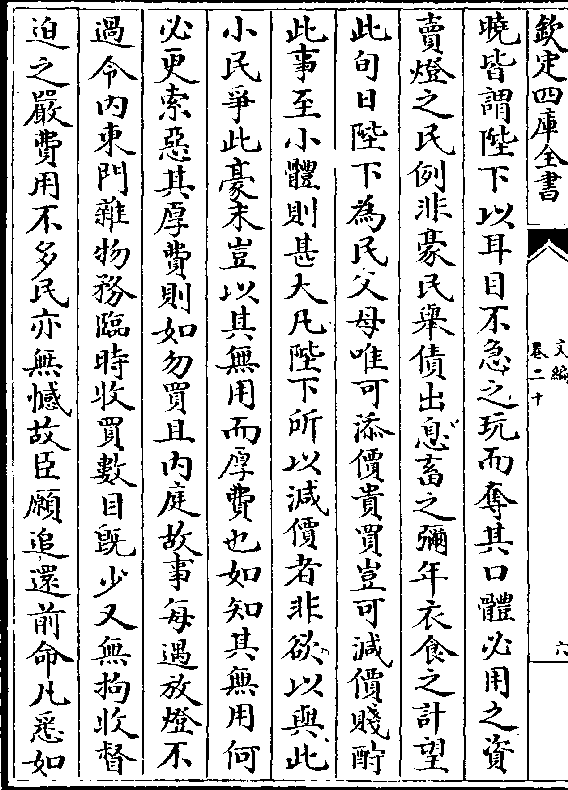 欽定四庫全書
文編
卷二十
六
曉皆謂陛下以耳目不急之玩而奪其口體必用之資
賣燈之民例非豪民舉債出息畜之彌年衣食之計望
此旬日陛下為民父母唯可添價貴買豈可減價賤酧
此事至小體則甚大凡陛下所以減價者非欲以與此
小民爭此豪末豈以其無用而厚費也如知其無用何
必更索惡其厚費則如勿買且内庭故事每遇放燈不
過令内東門雜物務臨時收買數目既少又無拘收督
迫之嚴費用不多民亦無憾故臣願追還前命凡悉如